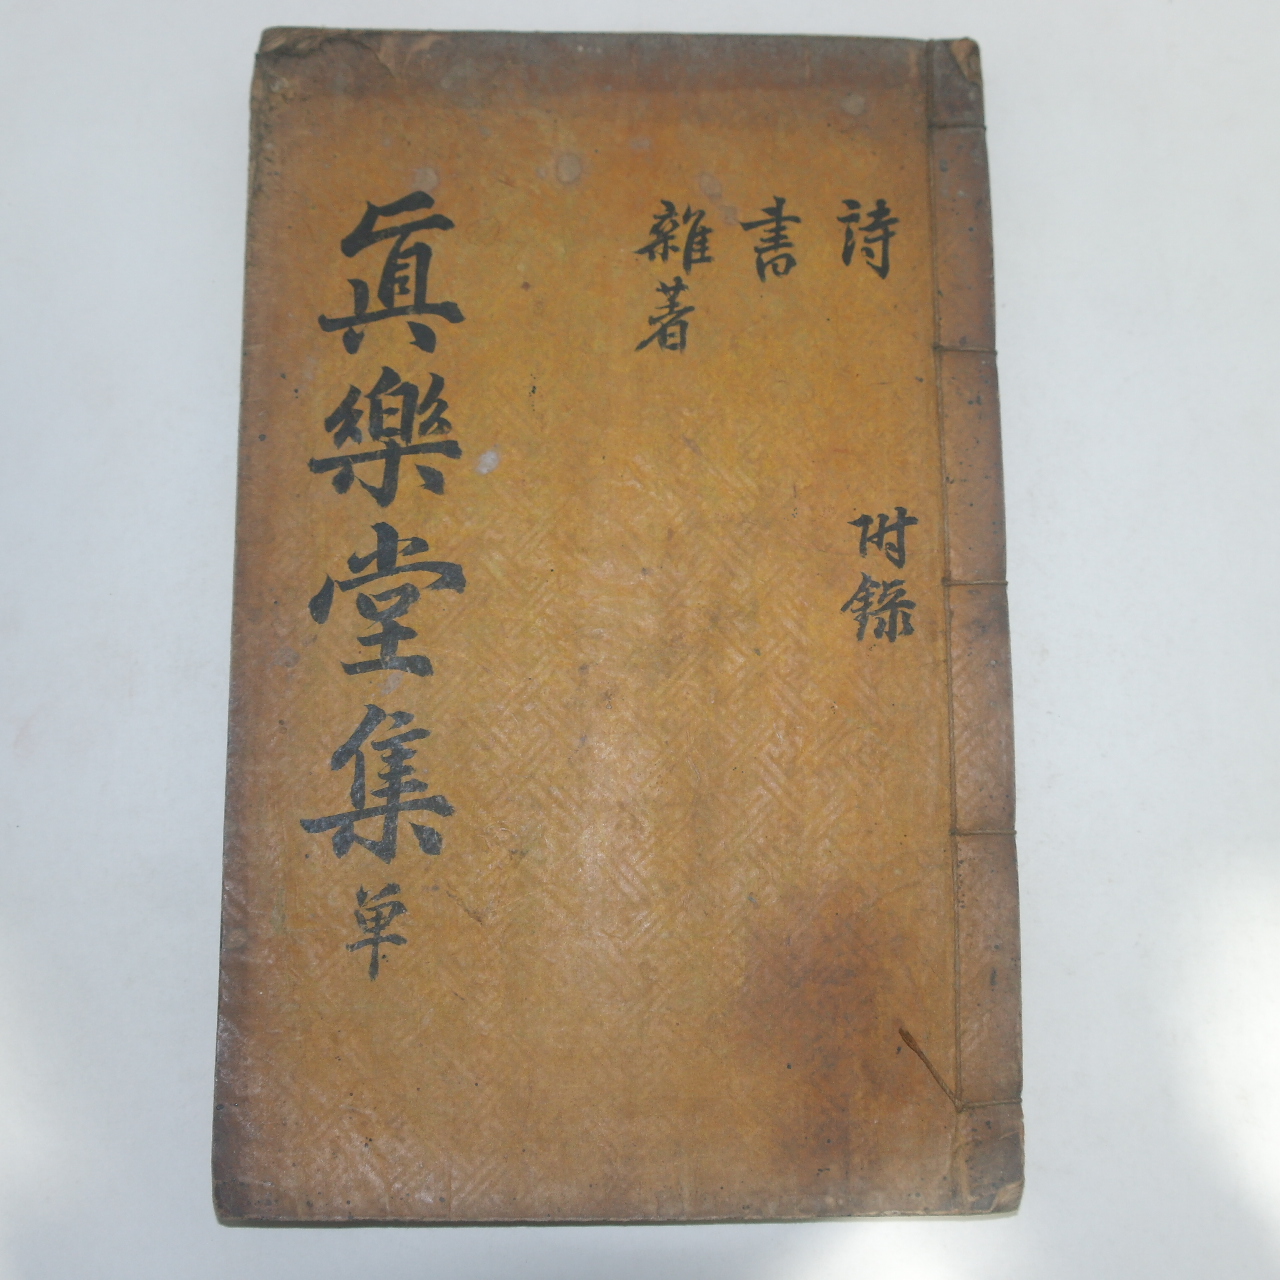 詩 附錄
書
雜著
眞樂堂集 单